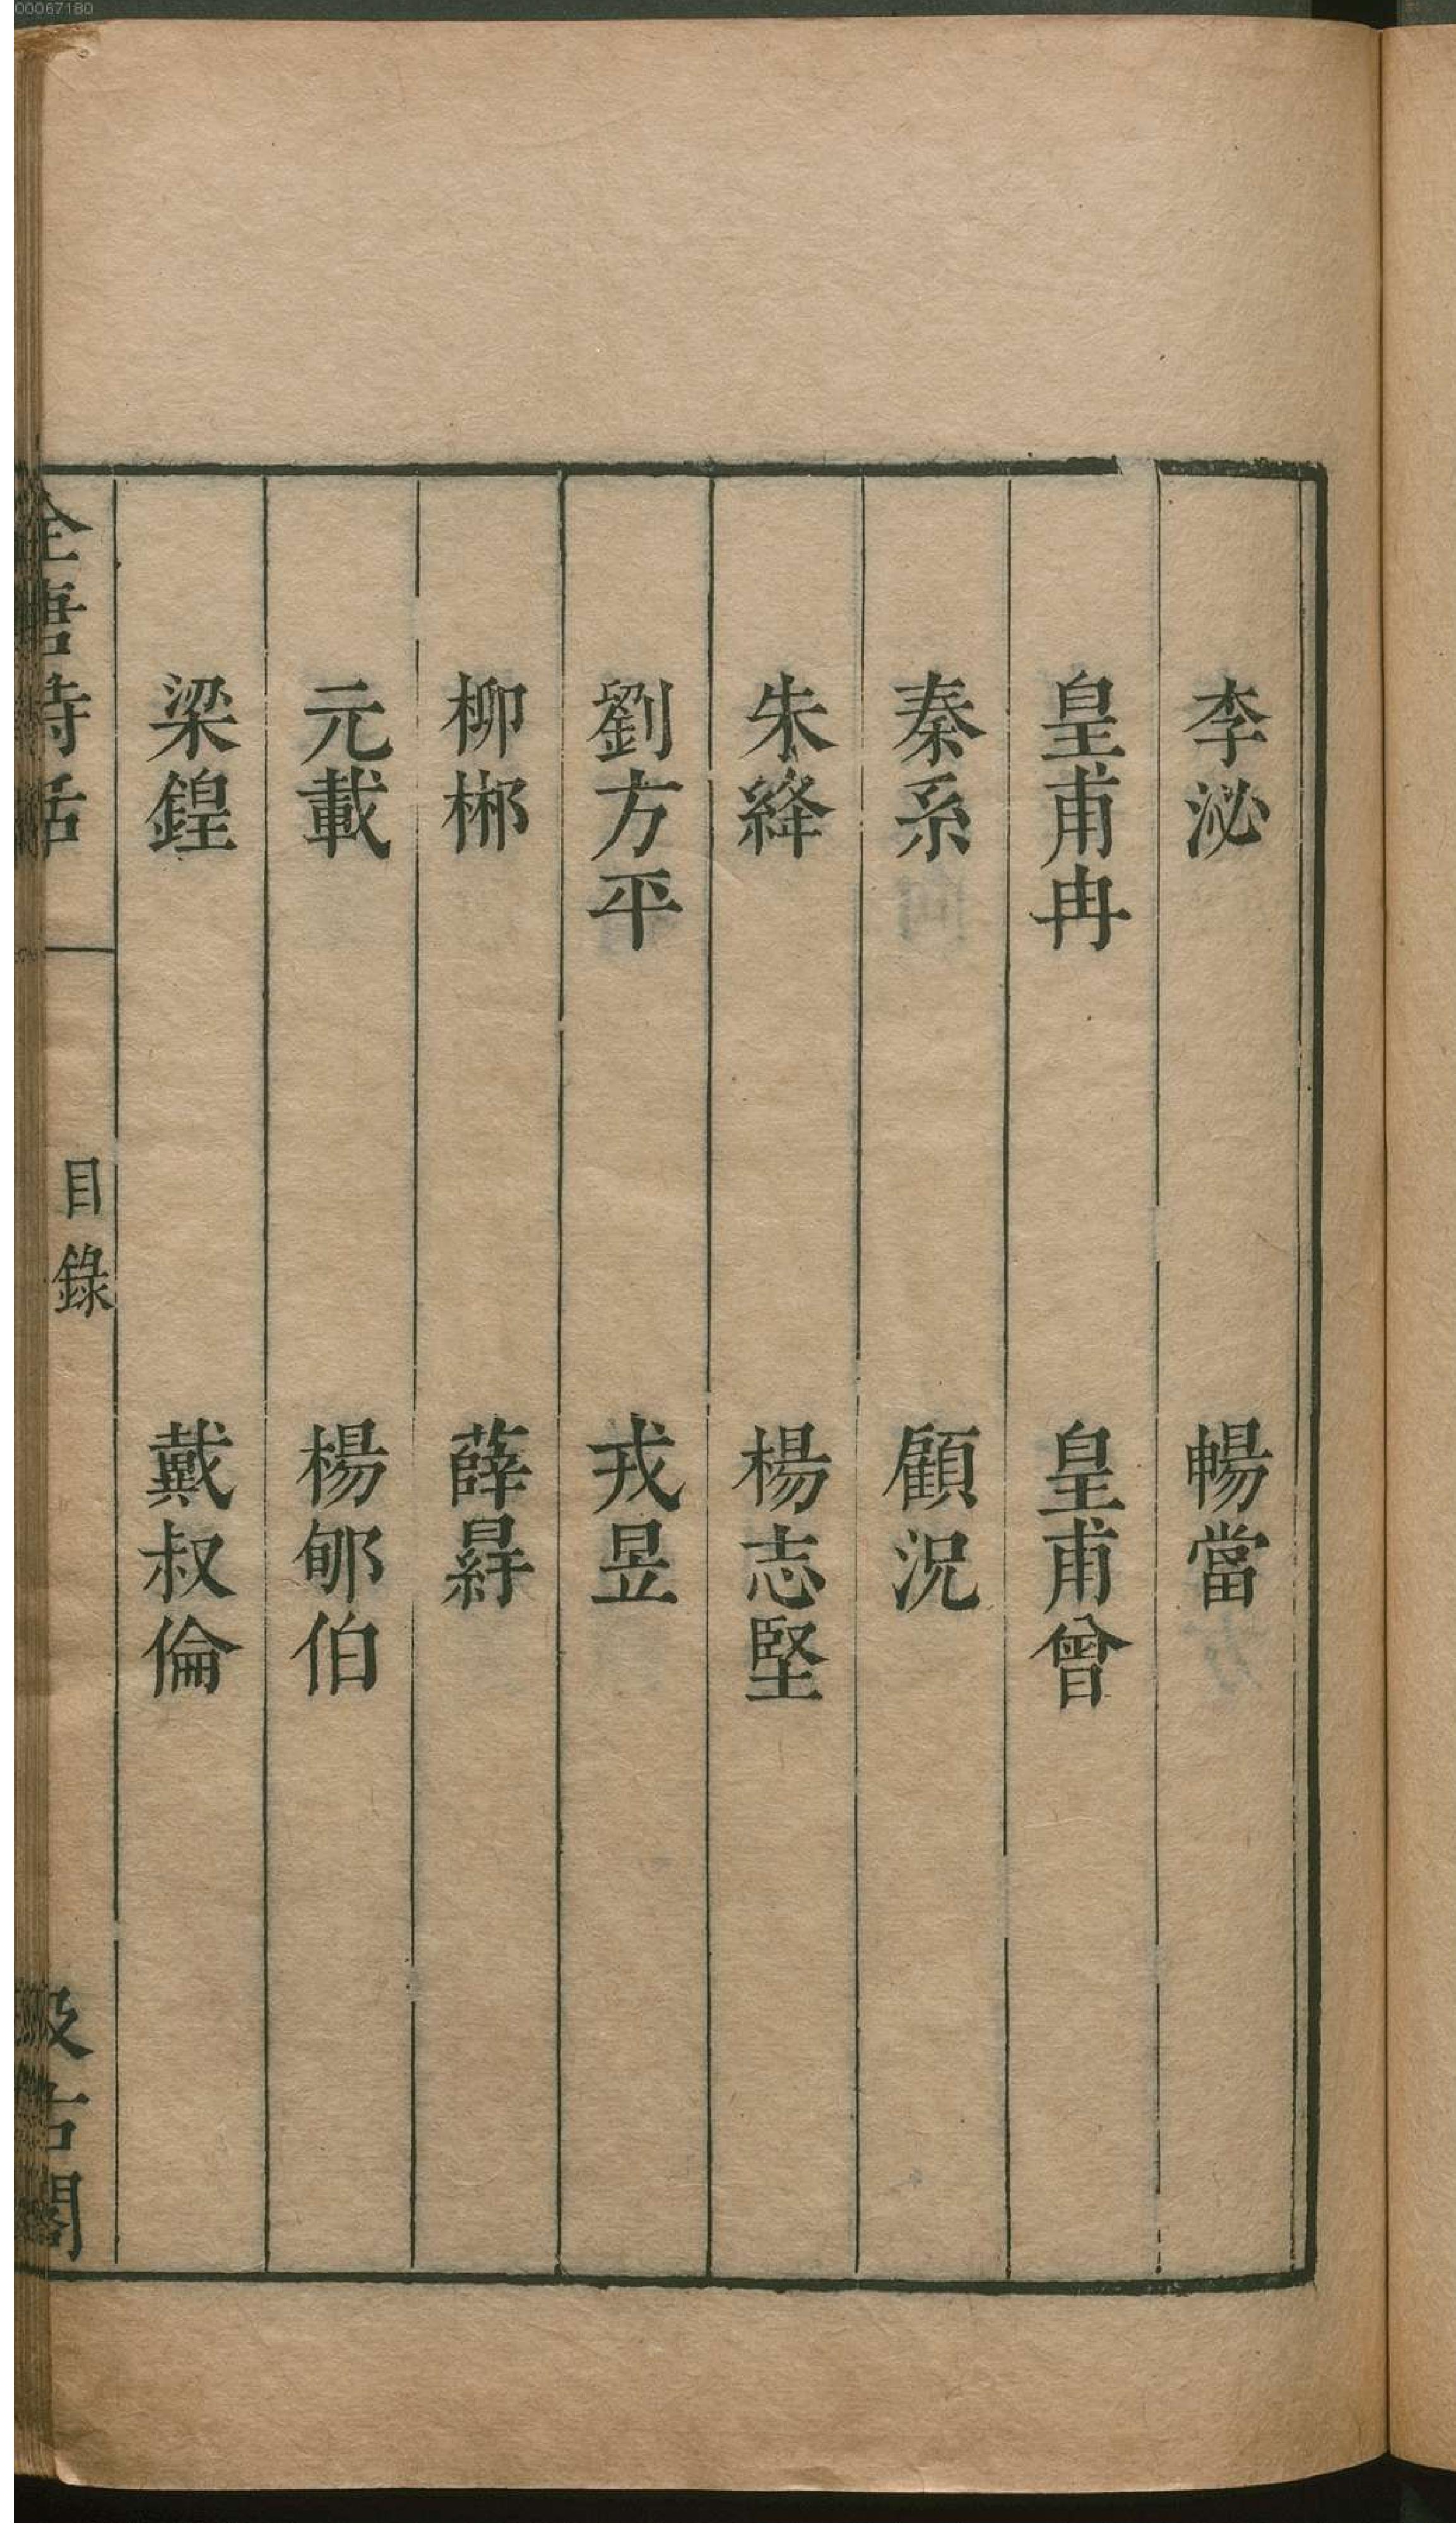 00067180
李泌 暢當
皇甫冉 皇甫曾
秦系 顧況
朱絳 楊志堅
劉方平 戎昱
柳郴 薛㝷
元載 楊郇伯
梁鍠 戴叔倫
全唐詩話 目錄 汲古閣